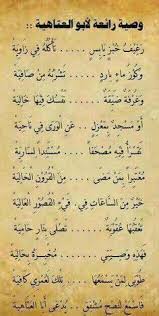 وصية رائعة لأبو العتاهية ::
رَغِيفُ خُبْزٍ يَابِسٍ ..... تَأْكُلُهُ فِي زَاوِيَة
وَكُوزُ مَاءٍ بَارِدٍ ..... تَشْرَبُهُ مِنْ صَافِيَة
وَغُرْفَةٌ ضَيِّقَةٌ ..... نَفْسُكَ فِيهَا خَالِيَة
أَوْ مَسْجِدٌ بِمَعْزِلٍ ..... عَنِ الوَرَى فِي نَاحِيَة
تَقْرَأُ فِيهِ مُصْحَفًا ..... مُسْتَنِدًا لِسَارِيَة
مُعْتَبِرًا بِمَنْ مَضَى ..... مِنَ القُرُونِ الخَالِيَة
خَيْرٌ مِنَ السَّاعَاتِ فِي ..... فَيْءِ القُصُورِ العَالِيَة
تَعْقُبُهَا عُقُوبَةٌ ..... تَصْلَى بِنَارٍ حَامِيَة
فَهَذِهِ وَصِيَّتِي ..... مُخْبِرَةٌ بِحَالِيَه
طُوبَى لِمَنْ يَسْمَعُهَا ..... تِلْكَ لَعَمْرِي كَافِيَة
فَاسْمَعْ لِنُصْحِ مُشْفِقٍ ..... يُدْعَى أَبَا العَتَاهِيَة